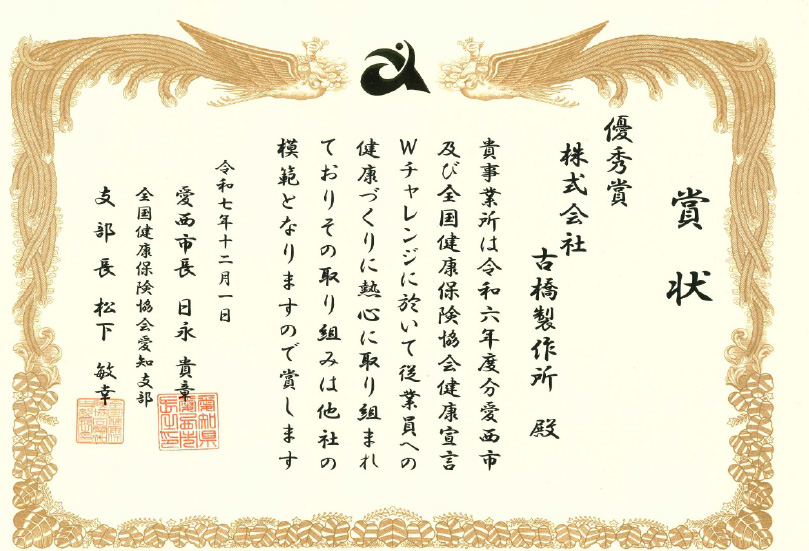 賞状
優秀賞
株式会社
古橋製作所 殿
貴事業所は令和六年度分愛西市
及び全国健康保険協会健康宣言
Wチャレンジに於いて従業員への
健康づくりに熱心に取り組まれ
ておりその取り組みは他社の
模範となりますので賞します
令和七年十二月一日
愛西市長 日永 貴章
全国健康保険協会愛知支部
支部長 松下 敏幸
愛知県
愛西市
長之印